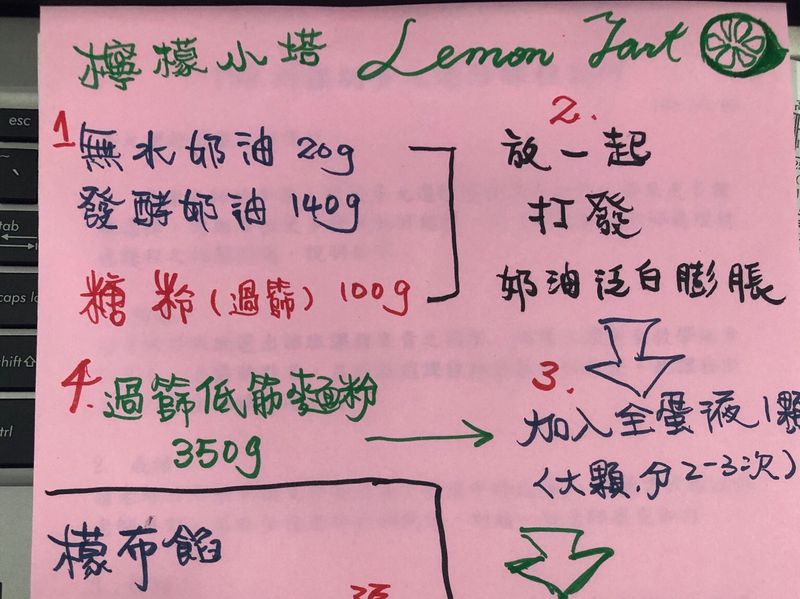 檸檬小塔 Lemon Tart
1
無水奶油 20g
發酵奶油 140g
糖粉(過篩) 100g
2.
放一起
打發
奶油泛白膨脹
3.
加入全蛋液1顆
(大顆.分2-3次)
4.
過篩低筋麵粉
350g
檬布餡
esc
tab
caps lo
shift
trl